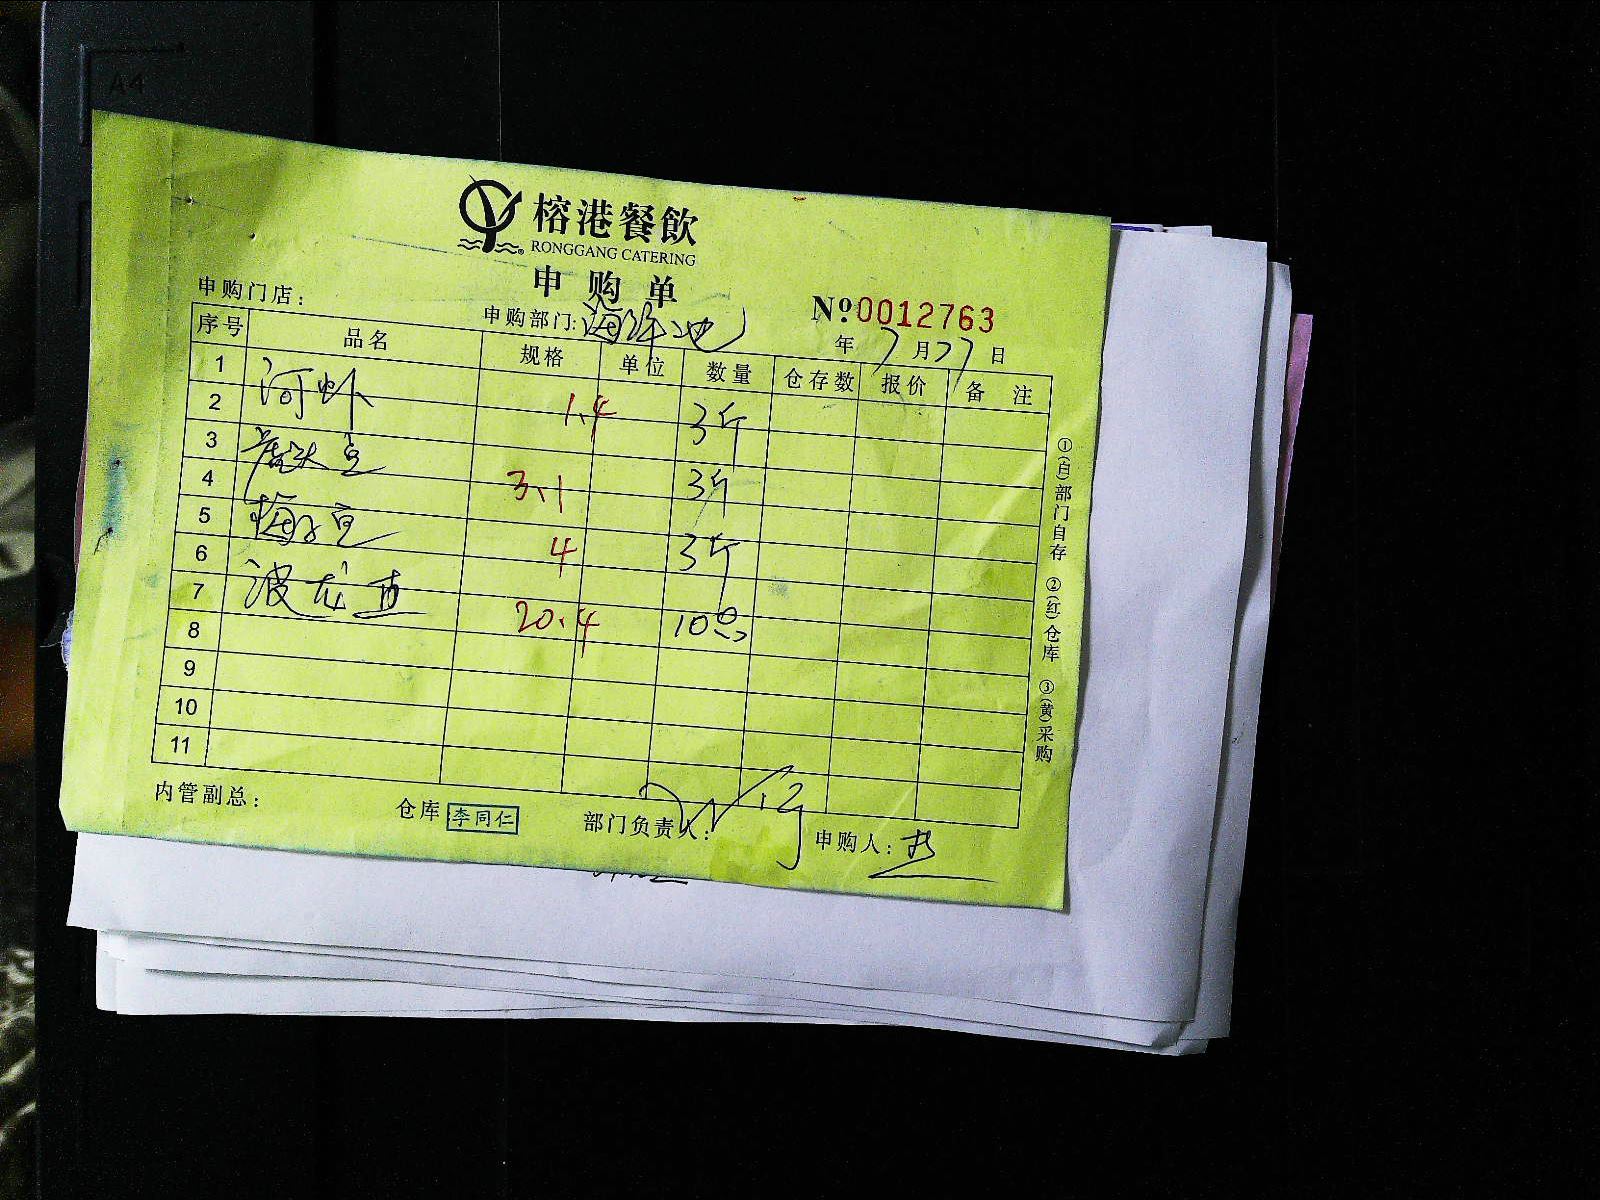 A4
榕港餐飲
RONGGANG CATERING
申购单
申购门店:
申购部门:海鲜池
№0012763
年7月27日
序号 品名 规格 单位 数量 仓存数 报价 备注
1
河虾 1.4 3斤
2
3
3.1 3斤
4
5
4 3斤
6
波龙 20.4 10只
7
8
9
10
11
①(白)部门自存 ②(红)仓库 ③(黄)采购
内管副总:
仓库 李同仁
部门负责人:
申购人: